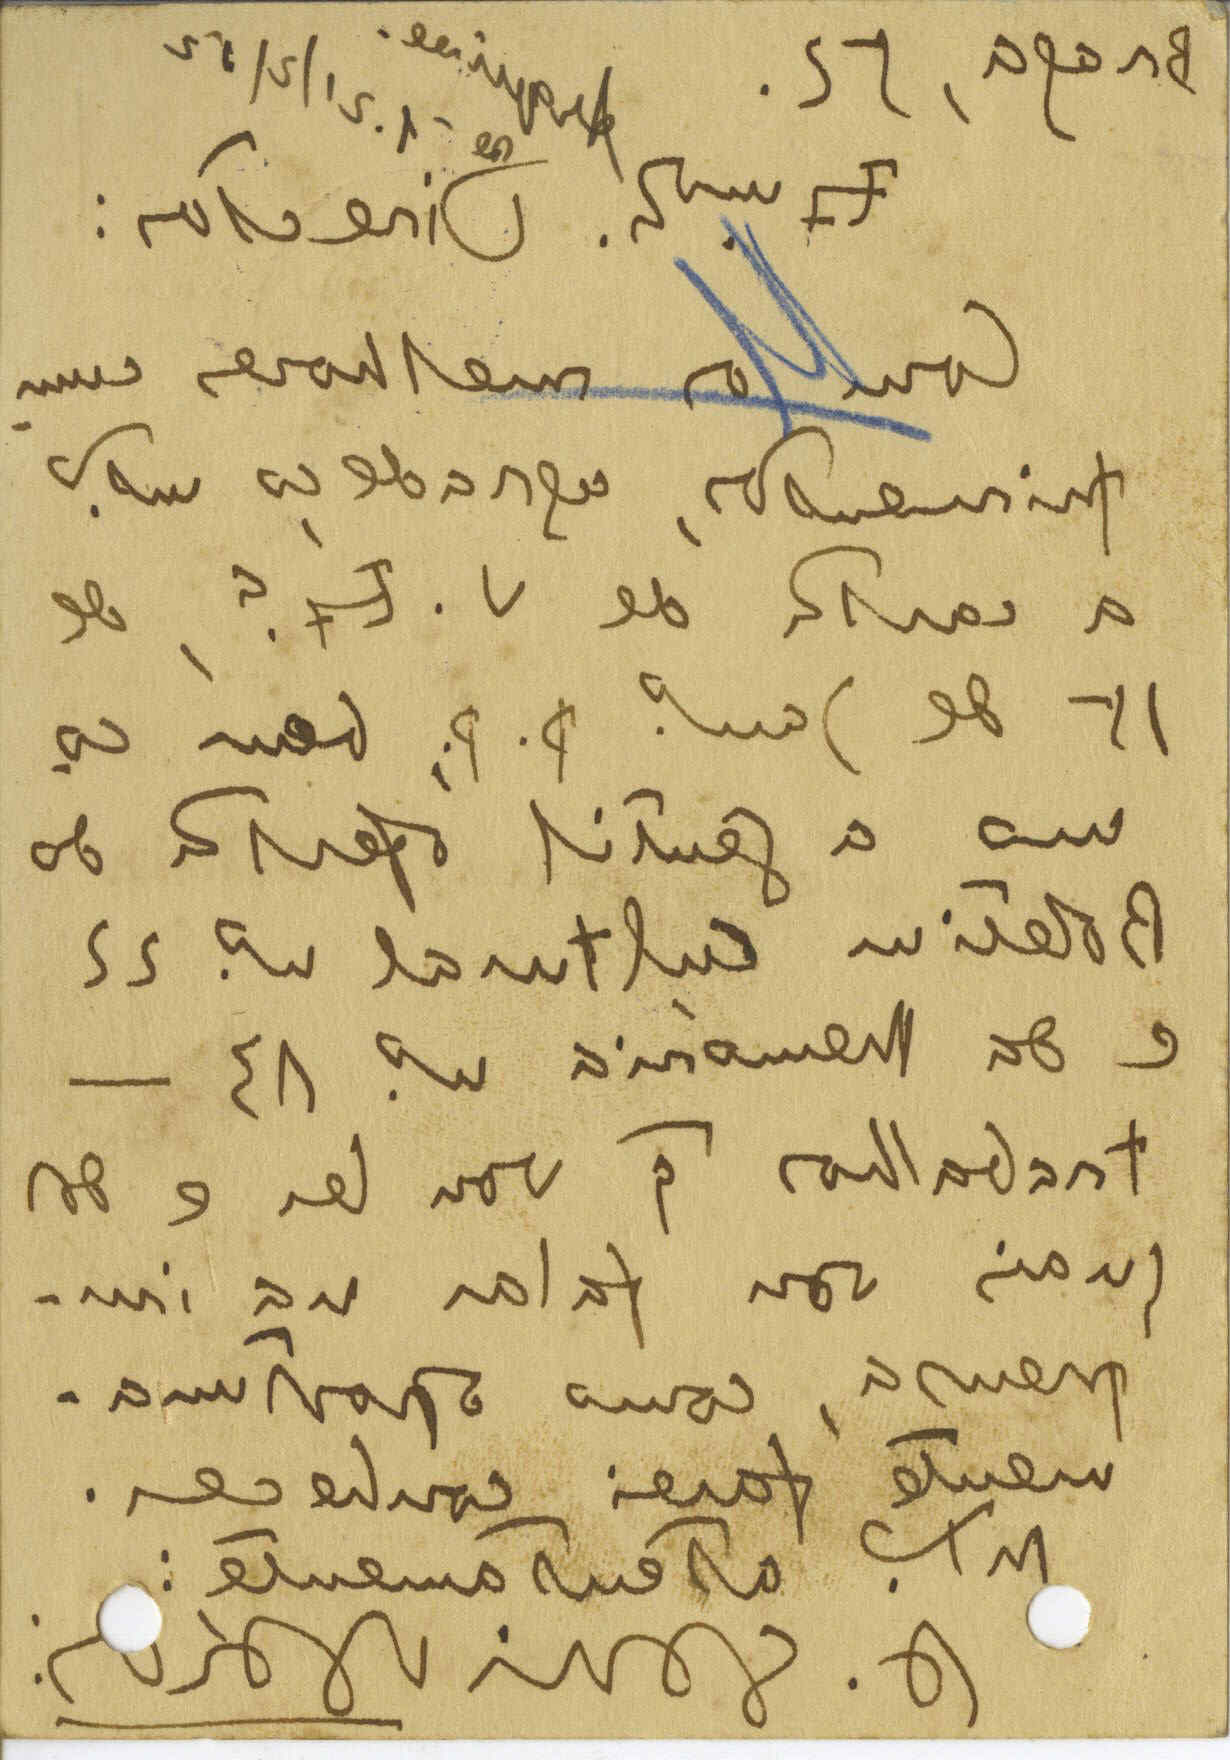 Braga, 75.
Ex.mo Sr. Director:
Com os melhores cum-
primentos, agradeço mto
a carta de V. Ex.a, de
17 de Jan.o p. p., bem co-
mo a gentil oferta do
Boletim Cultural n.o 22
e da Memória n.o 13 —
trabalhos q vou ler e de
quais vou falar na im-
prensa, como oportuna-
mente farei conhecer.
Mto atentamente: